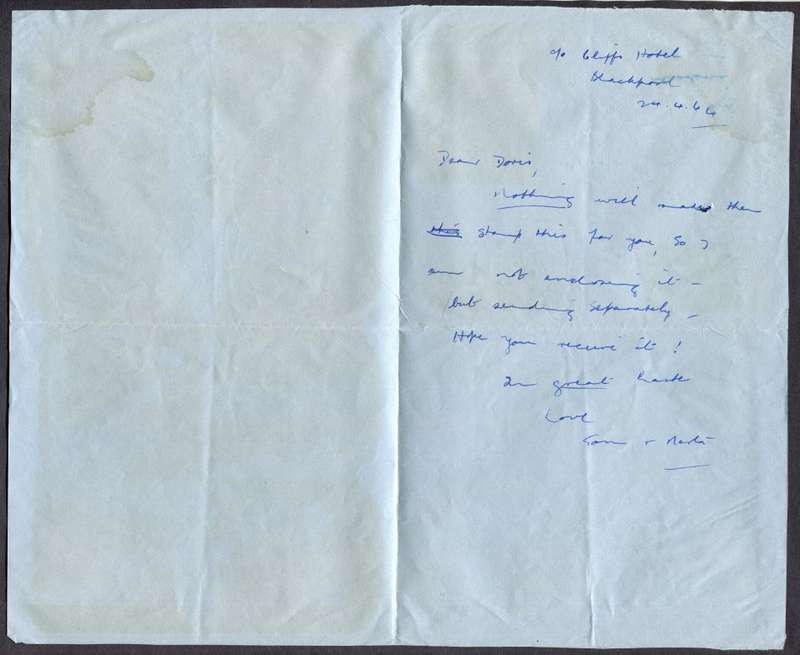 c/o Cliffs Hotel
Blackpool
24.4.64
Dear Doris,
Nothing will make them
stamp this for you, so I
am not enclosing it -
but sending separately -
Hope you receive it!
In great haste
Love
&